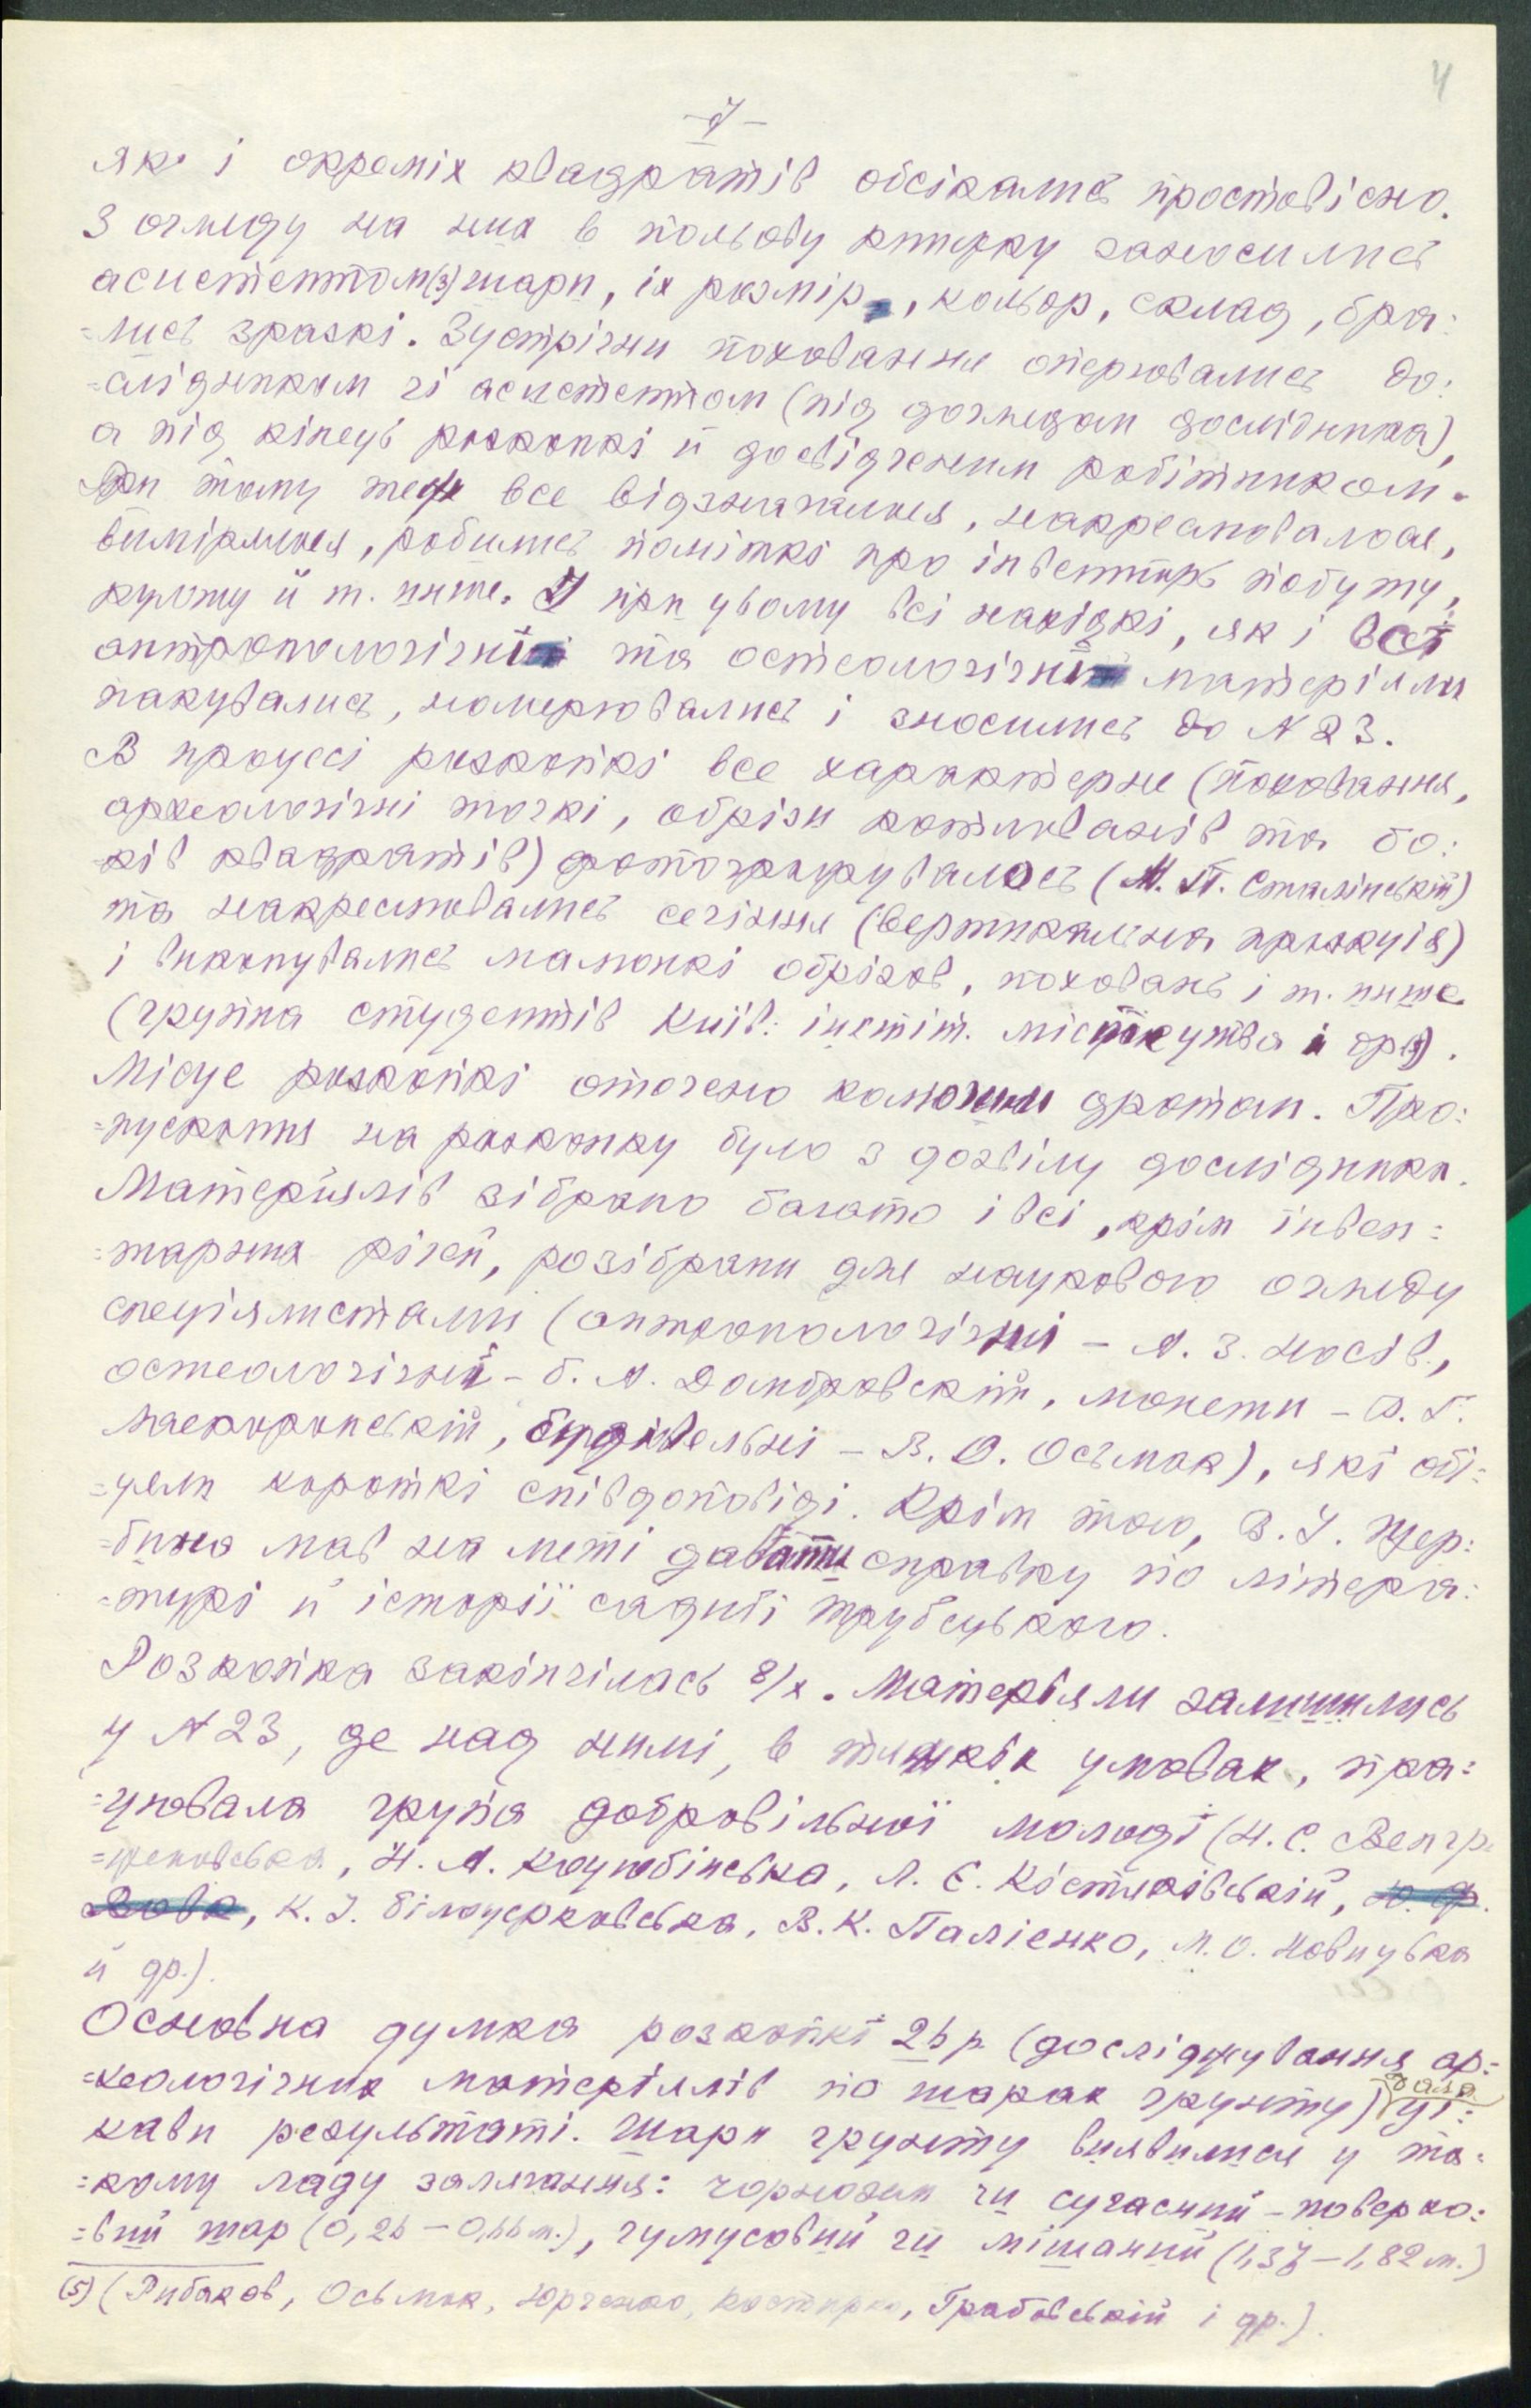 4
-7-
як і окреміх квадратів обсікались простовісно.
З огляду на них в польову книжку заносились
асистентом(з) шари, іх розмір, кольор, склад, бра:
=лись зразкі. Зустрічни поховання оперювались до:
=слідником чі асистентом (під доглядом дослідника),
а під кінець розкопкі й досвідченим робітником.
При тому теж все відзначалося, накреслювалося,
вимірялося, робились поміткі про інвентарь побуту,
культу й т. инше. І при цьому всі знахідкі, як і всі
антропологічні та остеологічні матеріяли
пакувались, номерювались і зносились до №23.
В процесі розкопкі все характерне (поховання,
археологічні точкі, обрізи котлованів та бо:
=ків квадратів) фотографувалось (М. П. Сталінський)
та накреслювались сечіння (вертикальна проекція)
і виконувались малюнкі обрізов, поховань і т. инше
(група студентів Київ: інстіт. містецтва і др(5).
Місце розкопкі оточено колючим дротом. Про:
=пускання на розкопку було з дозвілу дослідника.
Матеріялів зібрано багато і всі, крім інвен:
=тарних річей, розібрани для наукового огляду
спеціялистами (антропологічні - А. З. Носів,
остеологічні - Б. М. Домбровскій, монети - В. Г.
Ляскоронській, будівельні - В. О. Осьмак), які обі:
=цяли короткі співдоповіді. Крім того, В. І. Щер:
=бина мав на меті давати справку по літера:
=турі й історії садиби Трубецького.
Розкопка закінчілась 8/х. Матеріяли залишились
у №23, де над ними, в тяжкіх умовах, пра:
=цювала група добровільної молоді (Н. С. Венгр
=женовська, Н. М. Коцюбінська, Л. Є. Кістяківській, Ю. Ф.
Вовк, К. І. Білоцерковська, В. К. Палієнко, М. О. Новицька
й др.).
Основна думка розкопкі 2b р. (досліджування ар:
=хеологічних матеріялів по шарах грунту) дала ці:
кави результаті. Шари грунту виявилися у та:
=кому ладу залягання: чорнозем чи сучасний - поверхо:
=вий шар (0,2b - 0,bb м.), гумусовий чи мішаний (1,37 - 1,82 м.)
(5) (Рибаков, Осьмак, Юрченко, Костирко, Грабовській і др.).